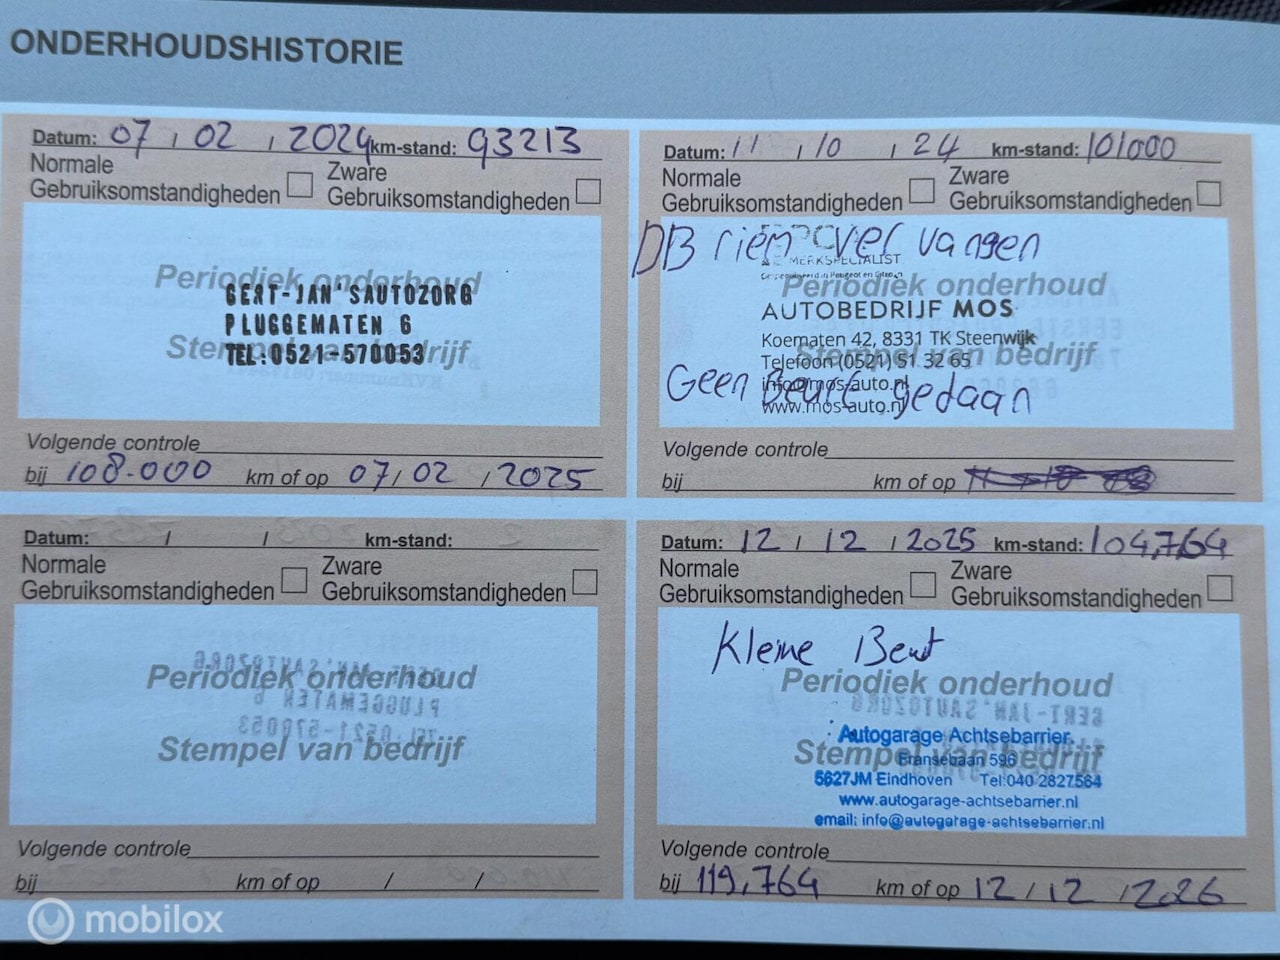 ONDERHOUDSHISTORIE
Datum: 07 / 02 / 2024 km-stand: 93213
Normale
Gebruiksomstandigheden
Zware
Gebruiksomstandigheden
Periodiek onderhoud
GERT-JAN'SAUTOZORG
PLUGGEMATEN 6
Stempel van bedrijf
TEL:0521-570053
Volgende controle
bij 108.000 km of op 07 / 02 / 2025
Datum: 11 / 10 / 24 km-stand: 101000
Normale
Gebruiksomstandigheden
Zware
Gebruiksomstandigheden
DB riem vervangen
MERKSPECIALIST
Periodiek onderhoud
AUTOBEDRIJF MOS
Koematen 42, 8331 TK Steenwijk
Stempel van bedrijf
Telefoon (0521) 51 32 65
info@mos-auto.nl
Geen Beurt gedaan
www.mos-auto.nl
Volgende controle
bij km of op
Datum: / / km-stand:
Normale
Gebruiksomstandigheden
Zware
Gebruiksomstandigheden
Periodiek onderhoud
Stempel van bedrijf
Volgende controle
bij km of op / /
Datum: 12 / 12 / 2025 km-stand: 104,764
Normale
Gebruiksomstandigheden
Zware
Gebruiksomstandigheden
Kleine Beurt
Periodiek onderhoud
Autogarage Achtsebarrier
Stempel van bedrijf
Fransebaan 596
5627JM Eindhoven Tel:040 2827584
www.autogarage-achtsebarrier.nl
email: info@autogarage-achtsebarrier.nl
Volgende controle
bij 119,764 km of op 12 / 12 / 2026
mobilox